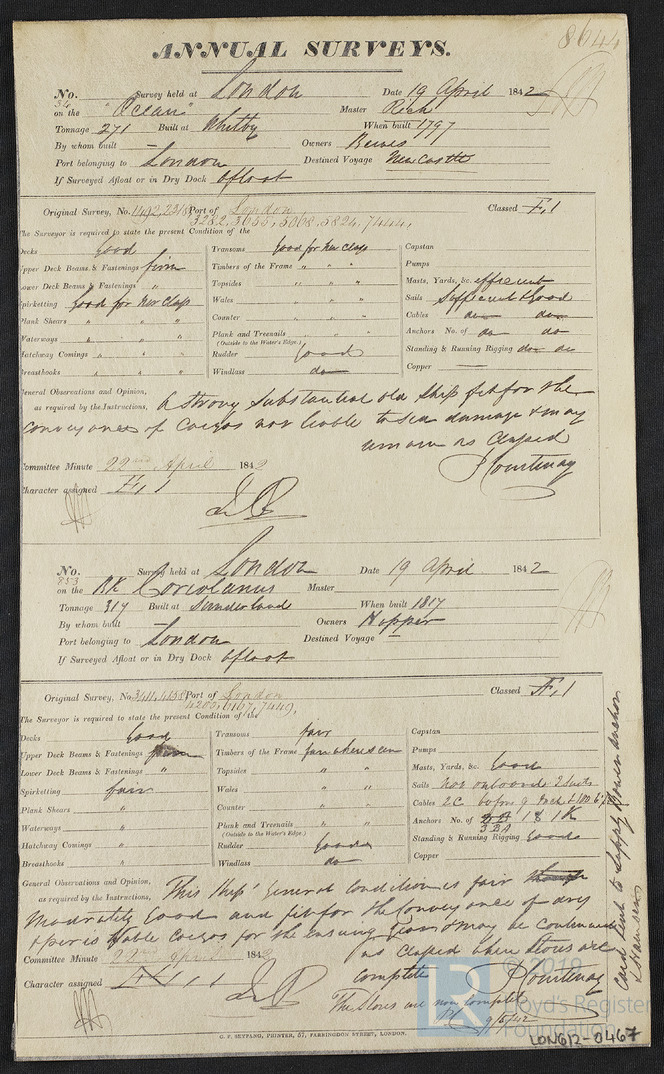 8644
ANNUAL SURVEYS.
No. 54 Survey held at London Date 19 April 1842
on the "Ocean" Master Rich
Tonnage 271 Built at Whitby When built 1797
By whom built — Owners Bewes
Port belonging to London Destined Voyage Newcastle
If Surveyed Afloat or in Dry Dock afloat
Original Survey, No. 1492, 2318 Port of London Classed Æ,1
3282, 3655, 5068, 5824, 7444,
The Surveyor is required to state the present Condition of the
Decks Good Transoms Good for her Class Capstan
Upper Deck Beams & Fastenings firm Timbers of the Frame " " " Pumps
Lower Deck Beams & Fastenings " Topsides " " " Masts, Yards, &c. efficient
Spirketting Good for her Class Wales " " " Sails Sufficient & Good
Plank Shears " " " Counter " " " Cables do do
Waterways " " " Plank and Treenails " " " Anchors No. of do do
(Outside to the Water's Edge.)
Hatchway Comings " " " Rudder Good Standing & Running Rigging do do
Breasthooks " " " Windlass do Copper —
General Observations and Opinion, A strong substantial old Ship fit for the
as required by the Instructions,
conveyance of Cargos not liable to Sea damage & may
remain as Classed
Committee Minute 22nd April 1842 J Courtenay
Character assigned Æ,1
No. 853 Survey held at London Date 19 April 1842
on the BK Coriolanus Master
Tonnage 317 Built at Sunderland When built 1817
By whom built — Owners Hopper
Port belonging to London Destined Voyage —
If Surveyed Afloat or in Dry Dock afloat
Original Survey, No. 3411, 4138 Port of London Classed Æ,1
4200, 6167, 7449,
The Surveyor is required to state the present Condition of the
Decks Good Transoms fair Capstan
Upper Deck Beams & Fastenings firm Timbers of the Frame fair where seen Pumps
Lower Deck Beams & Fastenings " Topsides " " Masts, Yards, &c. Good
Spirketting fair Wales " " Sails Not onboard 2 Suits
Plank Shears " Counter " " Cables 2C
Waterways " Plank and Treenails " " Anchors No. of 3BA 1S 1K
(Outside to the Water's Edge.) 3BA
Hatchway Comings " Rudder Good Standing & Running Rigging Good
Breasthooks " Windlass do Copper
General Observations and Opinion, This Ships General Condition is fair
as required by the Instructions,
Moderately Good and fit for the Conveyance of dry
& perishable Cargos for the ensuing Year & may be continued
as Classed when Stores are
Committee Minute 22nd April 1842 complete J Courtenay
Character assigned Æ,1
The Stores are now complete
9/5/42
Card sent to Supply Bower Anchor
G. F. SEYFANG, PRINTER, 57, FARRINGDON STREET, LONDON.
© 2019
LR
Lloyd's Register
Foundation
LON612-0467